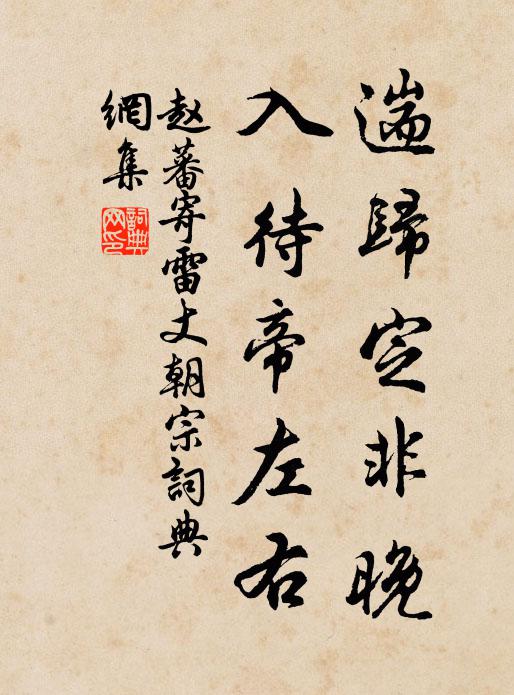 遄歸定非晚
入待帝左右
赵蕃寄雷丈朝宗詞典
網集
詞典
网印